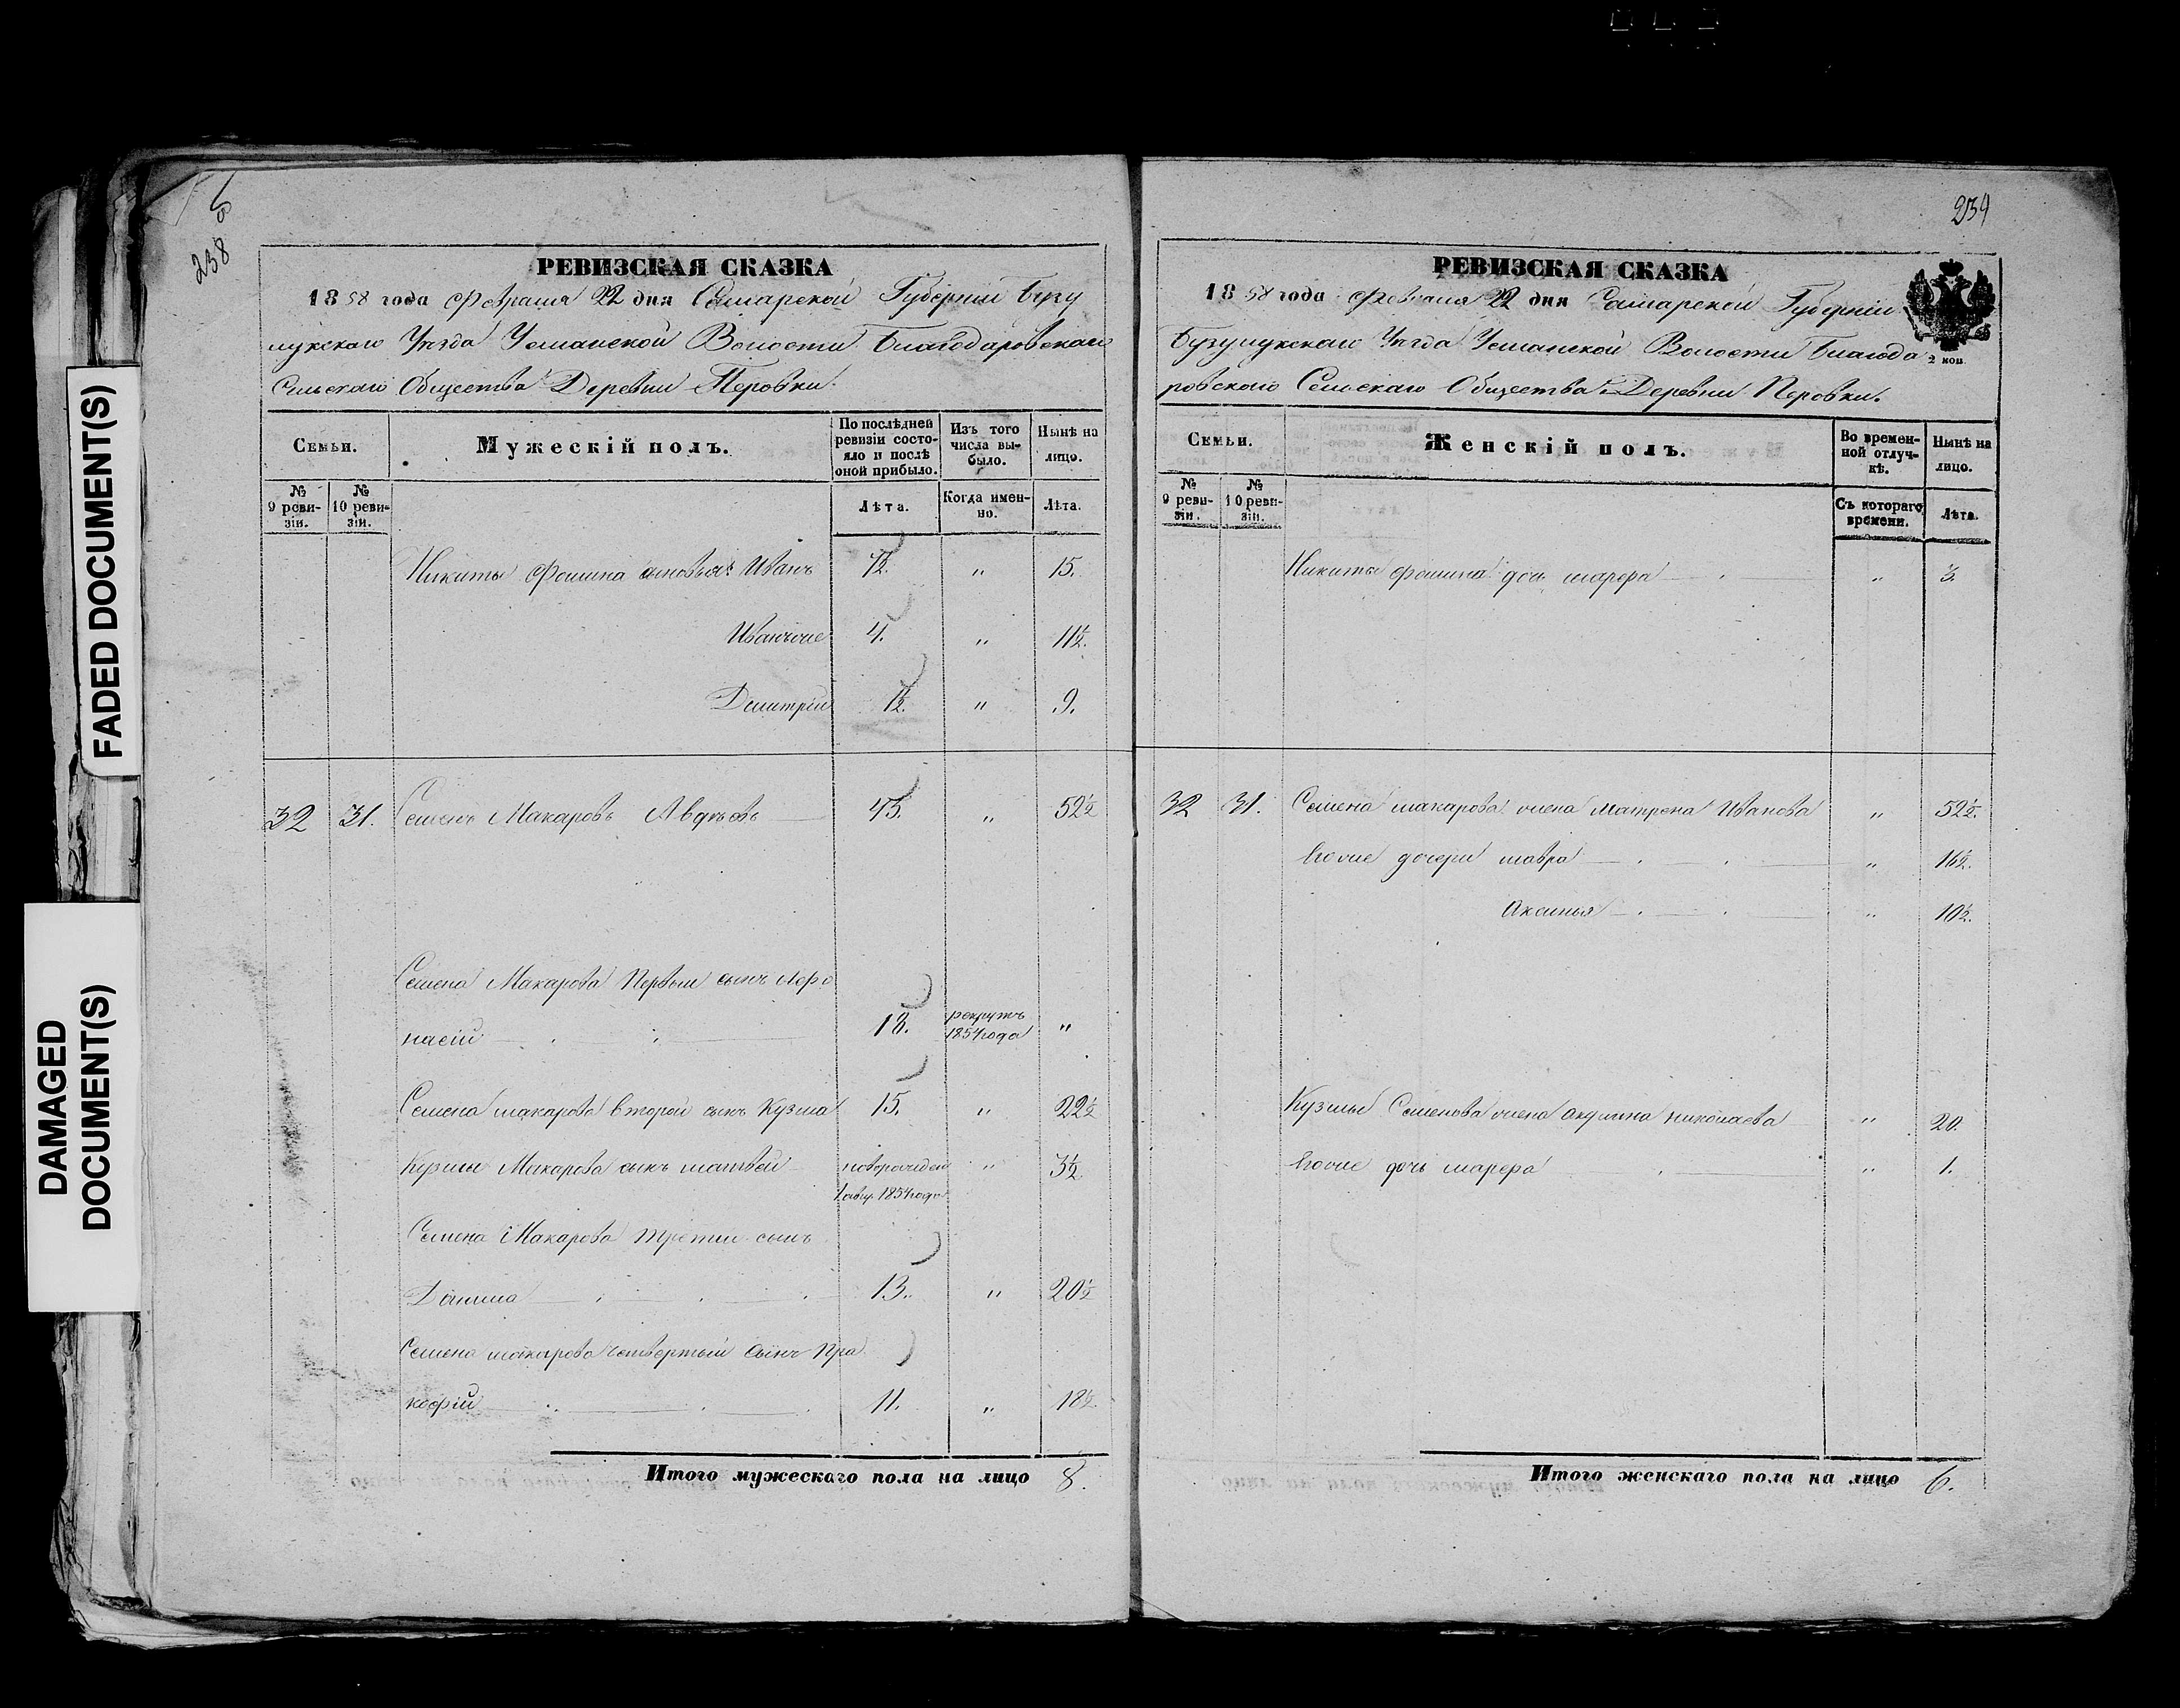 FADED DOCUMENT(S)
DAMAGED
DOCUMENT(S)
238
РЕВИЗСКАЯ СКАЗКА
1858 года Февраля 22 дня Самарской Губерніи Бузу
лукскаго Уѣзда Усманской Волости Благодаровскаго
Сельскаго Общества Деревни Перовки.
Семьи.
Мужескій полъ.
По послѣдней ревизіи состояло и послѣ оной прибыло.
Изъ того числа выбыло.
Нынѣ на лицо.
№ 9 ревизіи.
№ 10 ревизіи.
Лѣта.
Когда именно.
Лѣта.
Никиты Фомина сыновья: Иванъ " 15.
Иванъ же 4. " 11½.
Дмитрій 1½. " 9.
32 31. Семенъ Макаровъ Авдѣевъ 45. " 52½
Семена Макарова Первый сынъ Афо
насій 18. рекрутъ 1854 года "
Семена Макарова второй сынъ Кузма 15. " 22½
Кузмы Макарова сынъ Матвей новорожден " 3½
1854 года
Семена Макарова третій сынъ
Данила 13. " 20½
Семена Макарова четвертый сынъ Пра
кофій 11. " 18½
Итого мужескаго пола на лицо 8.
239
РЕВИЗСКАЯ СКАЗКА
1858 года Февраля 22 дня Самарской Губерніи
Бузулукскаго Уѣзда Усманской Волости Благода
2 коп.
ровскаго Сельскаго Общества Деревни Перовки.
Семьи.
Женскій полъ.
Во временной отлучкѣ.
Нынѣ на лицо.
№ 9 ревизіи.
№ 10 ревизіи.
Съ котораго времени.
Лѣта.
Никиты Фомина дочь Марфа " 3.
32 31. Семена Макарова жена Матрена Иванова " 52½.
Его же дочери Мавра " 16½.
Аксинья " 10½.
Кузмы Семенова жена Акулина Николаева " 20.
Его же дочь Марфа " 1.
Итого женскаго пола на лицо 6.